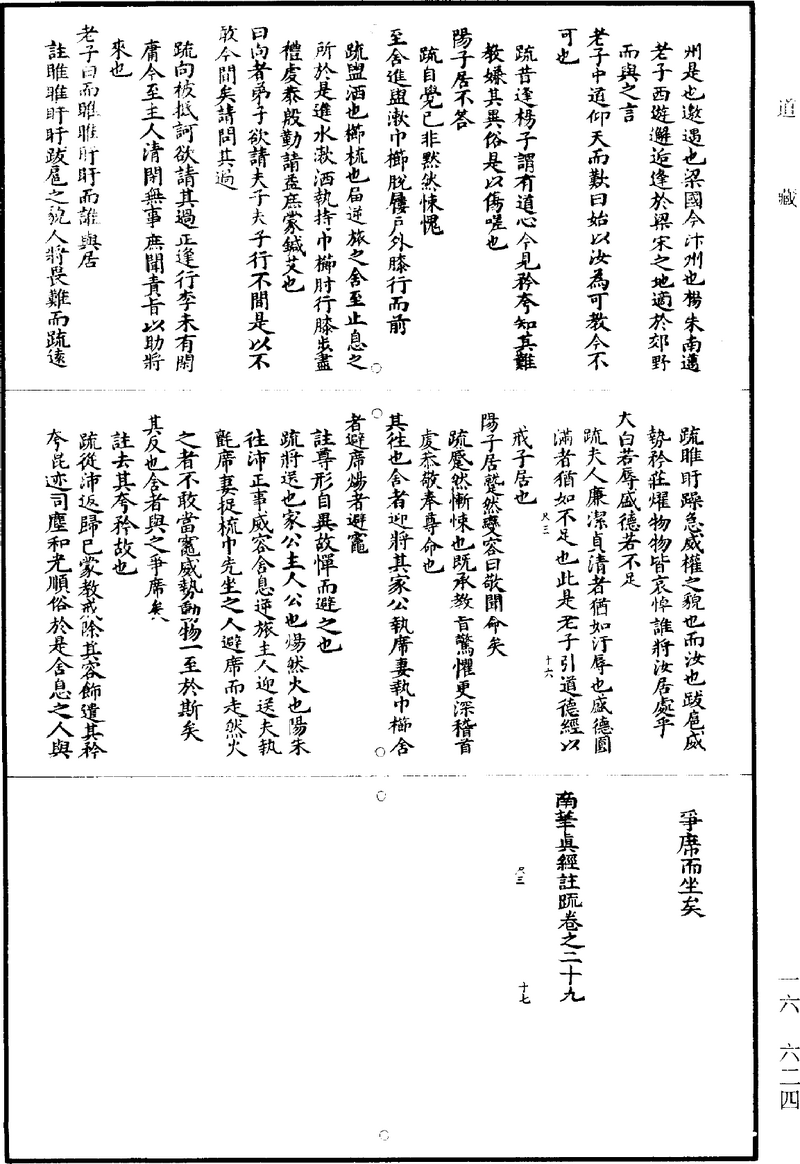 道藏
州是也邀遇也梁國今汴州也楊朱南邁
老子西遊邂逅逢於梁宋之地適於郊野
而與之言
老子中道仰天而歎曰始以汝為可教今不
可也
疏昔逢楊子謂有道心今見矜夸知其難
教嫌其異俗是以傷嗟也
陽子居不答
疏自覺已非默然悚愧
至舍進盥漱巾櫛脫屨戶外膝行而前
疏盥洒也櫛梳也屆逆旅之舍至止息之
所於是進水漱洒執持巾櫛肘行膝步盡
禮虔恭殷勤請益庶蒙鍼艾也
曰向者弟子欲請夫子夫子行不閒是以不
敢今閒矣請問其過
疏向被抵訶欲請其過正逢行李未有閑
庸今至主人清閑無事庶聞責旨以助將
來也
老子曰而睢睢盱盱而誰與居
註睢睢盱盱跋扈之貌人將畏難而疏遠
疏睢盱躁急威權之貌也而汝也跋扈威
勢矜莊燿物物皆哀悼誰將汝居處乎
大白若辱盛德若不足
疏夫人廉潔貞清者猶如汙辱也盛德圓
滿者猶如不足也此是老子引道德經以
尺三 十六
戒子居也
陽子居蹵然變容曰敬聞命矣
疏蹙然慚悚也既承教旨驚懼更深稽首
虔恭敬奉尊命也
其往也舍者迎將其家公執席妻執巾櫛舍
者避席煬者避竈
註尊形自異故憚而避之也
疏將送也家公主人公也煬然火也陽朱
往沛正事威容舍息逆旅主人迎送夫執
氈席妻捉梳巾先坐之人避席而走然火
之者不敢當竈威勢動物一至於斯矣
其反也舍者與之爭席矣
註去其夸矜故也
疏從沛返歸已蒙教戒除其容飾遣其矜
夸混迹同塵和光順俗於是舍息之人與
爭席而坐矣
南華真經註疏卷之二十九
尺三 十七
一六 六二四